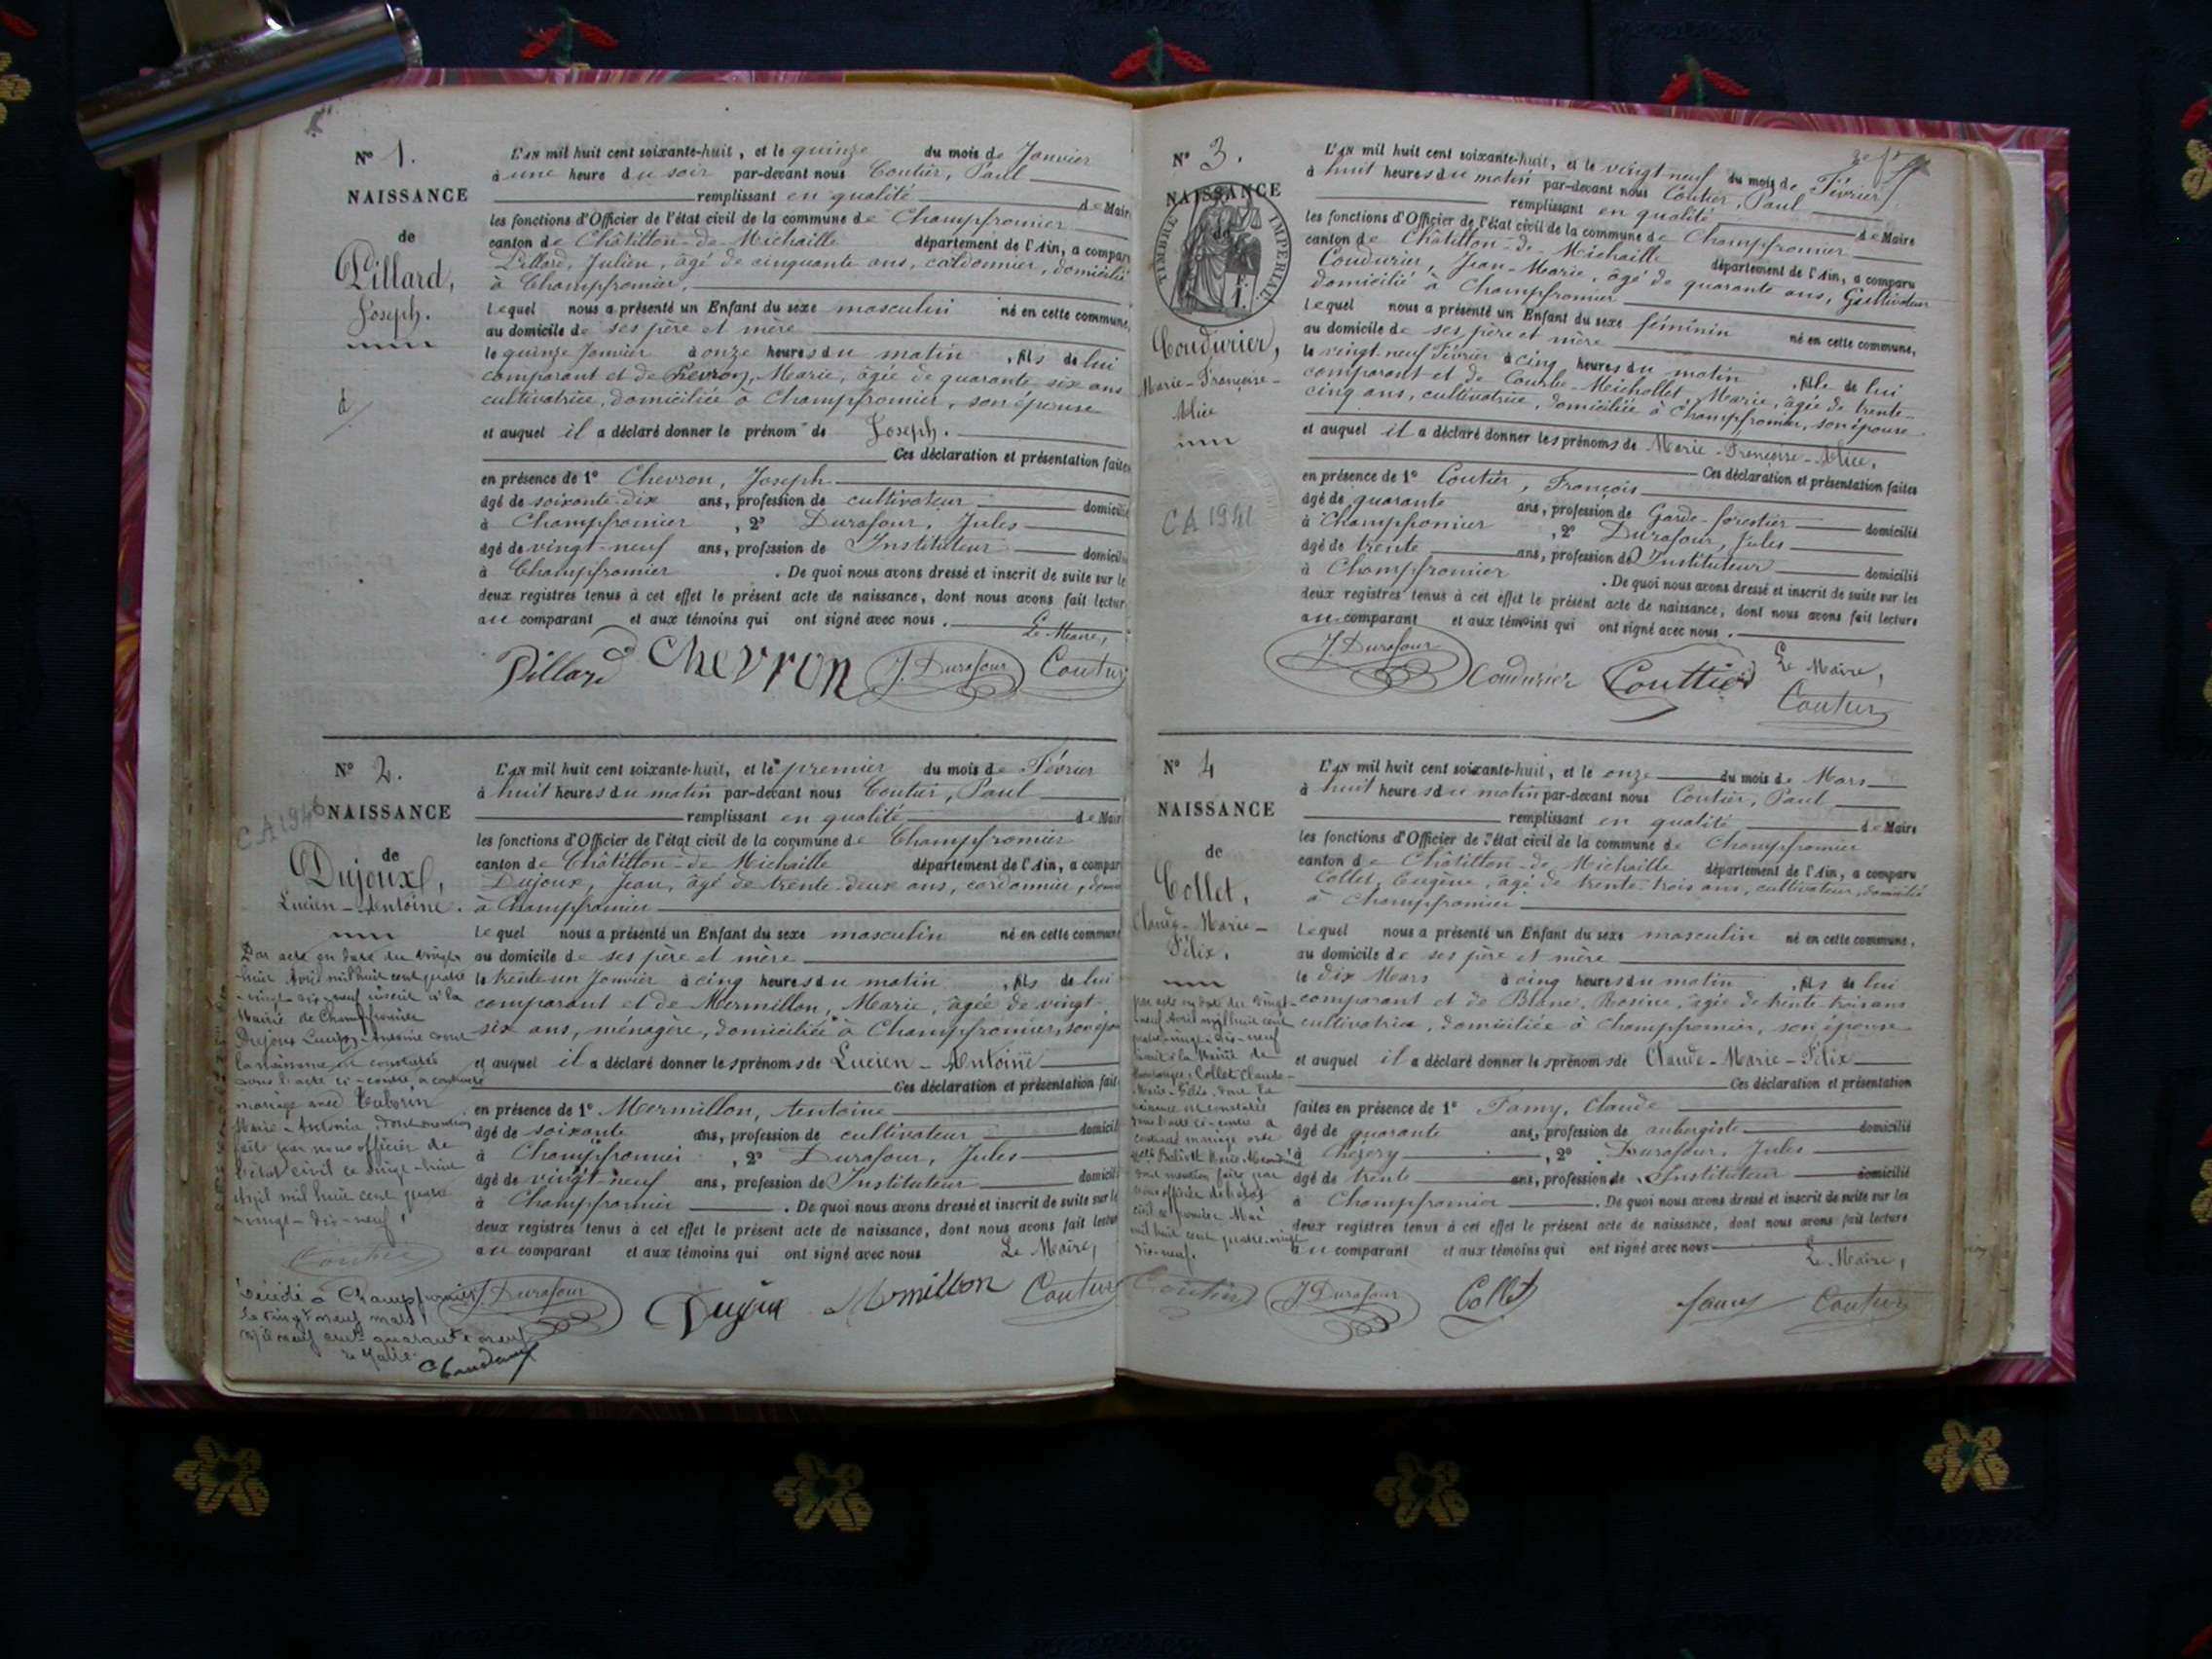 N° 1.
NAISSANCE
de
Pillard,
Joseph.
L'an mil huit cent soixante-huit, et le quinze du mois de Janvier
à une heure du soir par-devant nous Coutier, Paul
remplissant en qualité de Maire
les fonctions d'Officier de l'état civil de la commune de Champfromier
canton de Châtillon-de-Michaille département de l'Ain, a compar
Pillard, Julien, âgé de cinquante ans, cordonnier, domicilié
à Champfromier,
lequel nous a présenté un Enfant du sexe masculin né en cette commune,
au domicile de ses père et mère
le quinze Janvier à onze heures du matin, fils de lui
comparant et de Marie, âgée de quarante six ans
cultivatrice, domiciliée à Champfromier, son épouse
et auquel il a déclaré donner le prénom de Joseph.
Ces déclaration et présentation faites
en présence de 1° Chevron, Joseph
âgé de soixante-dix ans, profession de cultivateur domicilié
à Champfromier, 2° Durafour, Jules
âgé de vingt-neuf ans, profession de Instituteur domicilié
à Champfromier. De quoi nous avons dressé et inscrit de suite sur le
deux registres tenus à cet effet le présent acte de naissance, dont nous avons fait lectur
au comparant et aux témoins qui ont signé avec nous.
Le Maire,
Pillard Chevron J. Durafour Coutier
N° 2.
CA 1946
NAISSANCE
de
Dujoux,
Lucien-Antoine.
Par acte en date du vingt-
huit Avril mil huit cent quatre
-vingt-dix-neuf inscrit à la
Mairie de Champfromier
Dujoux Lucien-Antoine dont
la naissance est constatée
dans l'acte ci-contre, a contracté
mariage avec
Marie-Antonia, dont mention
faite par nous officier de
l'état civil ce vingt-huit
Avril mil huit cent quatre
-vingt-dix-neuf.
Coutier
Décédé à Champfromier
le vingt neuf mars
mil neuf cent quarante neuf
Le Maire
L'an mil huit cent soixante-huit, et le premier du mois de Février
à huit heures du matin par-devant nous Coutier, Paul
remplissant en qualité de Mair
les fonctions d'Officier de l'état civil de la commune de Champfromier
canton de Châtillon-de-Michaille département de l'Ain, a compar
Dujoux, Jean, âgé de trente-deux ans, cordonnier, domi
à Champfromier
lequel nous a présenté un Enfant du sexe masculin né en cette commune
au domicile de ses père et mère
le trente-un Janvier à cinq heures du matin, fils de lui
comparant et de Mermillon, Marie, âgée de vingt-
six ans, ménagère, domiciliée à Champfromier, son épou
et auquel il a déclaré donner les prénoms de Lucien-Antoine
Ces déclaration et présentation fait
en présence de 1° Mermillon, Antoine
âgé de soixante ans, profession de cultivateur domicil
à Champfromier, 2° Durafour, Jules
âgé de vingt-neuf ans, profession de Instituteur domicil
à Champfromier. De quoi nous avons dressé et inscrit de suite sur le
deux registres tenus à cet effet le présent acte de naissance, dont nous avons fait lectur
au comparant et aux témoins qui ont signé avec nous
Le Maire,
J. Durafour Dujoux Mermillon Coutier
N° 3.
NAISSANCE
de
TIMBRE IMPÉRIAL
Coudurier,
Marie-Françoise-
Alice
CA 1941
L'an mil huit cent soixante-huit, et le vingt neuf du mois de Février
à huit heures du matin par-devant nous Coutier, Paul
remplissant en qualité de Maire
les fonctions d'Officier de l'état civil de la commune de Champfromier
canton de Châtillon-de-Michaille département de l'Ain, a comparu
Coudurier, Jean-Marie, âgé de quarante ans, Cultivateur
domicilié à Champfromier
lequel nous a présenté un Enfant du sexe féminin né en cette commune,
au domicile de ses père et mère
le vingt-neuf Février à cinq heures du matin, fille de lui
comparant et de Coutbe-Michollet, Marie, âgée de trente-
cinq ans, cultivatrice, domiciliée à Champfromier, son épouse
et auquel il a déclaré donner les prénoms de Marie-Françoise-Alice.
Ces déclaration et présentation faites
en présence de 1° Coutier, François
âgé de quarante ans, profession de Garde-forestier domicilié
à Champfromier, 2° Durafour, Jules
âgé de trente ans, profession de Instituteur domicilié
à Champfromier. De quoi nous avons dressé et inscrit de suite sur les
deux registres tenus à cet effet le présent acte de naissance, dont nous avons fait lecture
au comparant et aux témoins qui ont signé avec nous.
Le Maire,
J. Durafour Coudurier Couttier Coutier
N° 4
NAISSANCE
de
Collet,
Claude-Marie-
Félix.
par acte en date du vingt-
neuf Avril mil huit cent
quatre-vingt-dix-neuf
inscrit à la Mairie de
Collet Claude-
Marie-Félix, dont la
naissance est constatée
dans l'acte ci-contre a
contracté mariage avec
dont mention faite par
nous officier de l'état
civil ce premier Mai
mil huit cent quatre-vingt
dix-neuf.
Coutier
L'an mil huit cent soixante-huit, et le onze du mois de Mars
à huit heures du matin par-devant nous Coutier, Paul
remplissant en qualité de Maire
les fonctions d'Officier de l'état civil de la commune de Champfromier
canton de Châtillon-de-Michaille département de l'Ain, a comparu
Collet, Eugène, âgé de trente-trois ans, cultivateur, domicilié
à Champfromier
lequel nous a présenté un Enfant du sexe masculin né en cette commune,
au domicile de ses père et mère
le dix Mars à cinq heures du matin, fils de lui
comparant et de Blanc, Rosine, âgée de trente-trois ans
cultivatrice, domiciliée à Champfromier, son épouse
et auquel il a déclaré donner les prénoms de Claude-Marie-Félix
Ces déclaration et présentation
faites en présence de 1° Famy, Claude
âgé de quarante ans, profession de aubergiste domicilié
à Chézery, 2° Durafour, Jules
âgé de trente ans, profession de Instituteur domicilié
à Champfromier. De quoi nous avons dressé et inscrit de suite sur les
deux registres tenus à cet effet le présent acte de naissance, dont nous avons fait lecture
au comparant et aux témoins qui ont signé avec nous
Le Maire,
J. Durafour Collet Famy Coutier